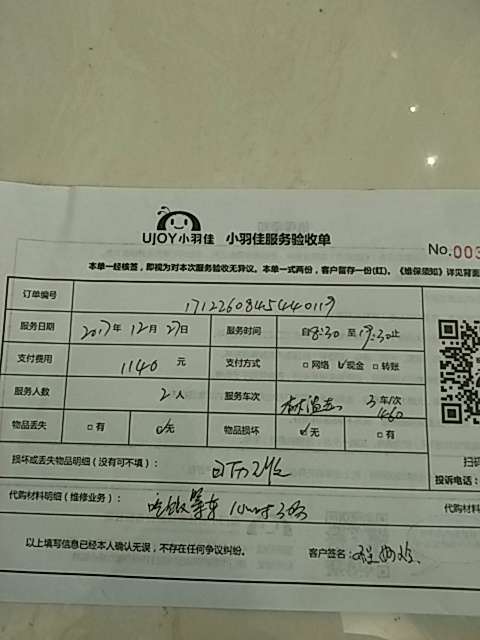 UJOY小羽佳 小羽佳服务验收单
No.003
本单一经核签，即视为对本次服务验收无异议。本单一式两份，客户留存一份(红)。《维保须知》详见背面
订单编号 1712260845440119
服务日期 2017年 12月 27日 服务时间 自8:30 至19:30止
支付费用 1140 元 支付方式 □网络 ✓现金 □转账
服务人数 2人 服务车次 3车/次
460
物品丢失 □有 ✓无 物品损坏 ✓无 □有
扫码
损坏或丢失物品明细（没有可不填）：
投诉电话：
代购材料明细（维修业务）：
代购材料
以上填写信息已经本人确认无误，不存在任何争议纠纷。 客户签名：